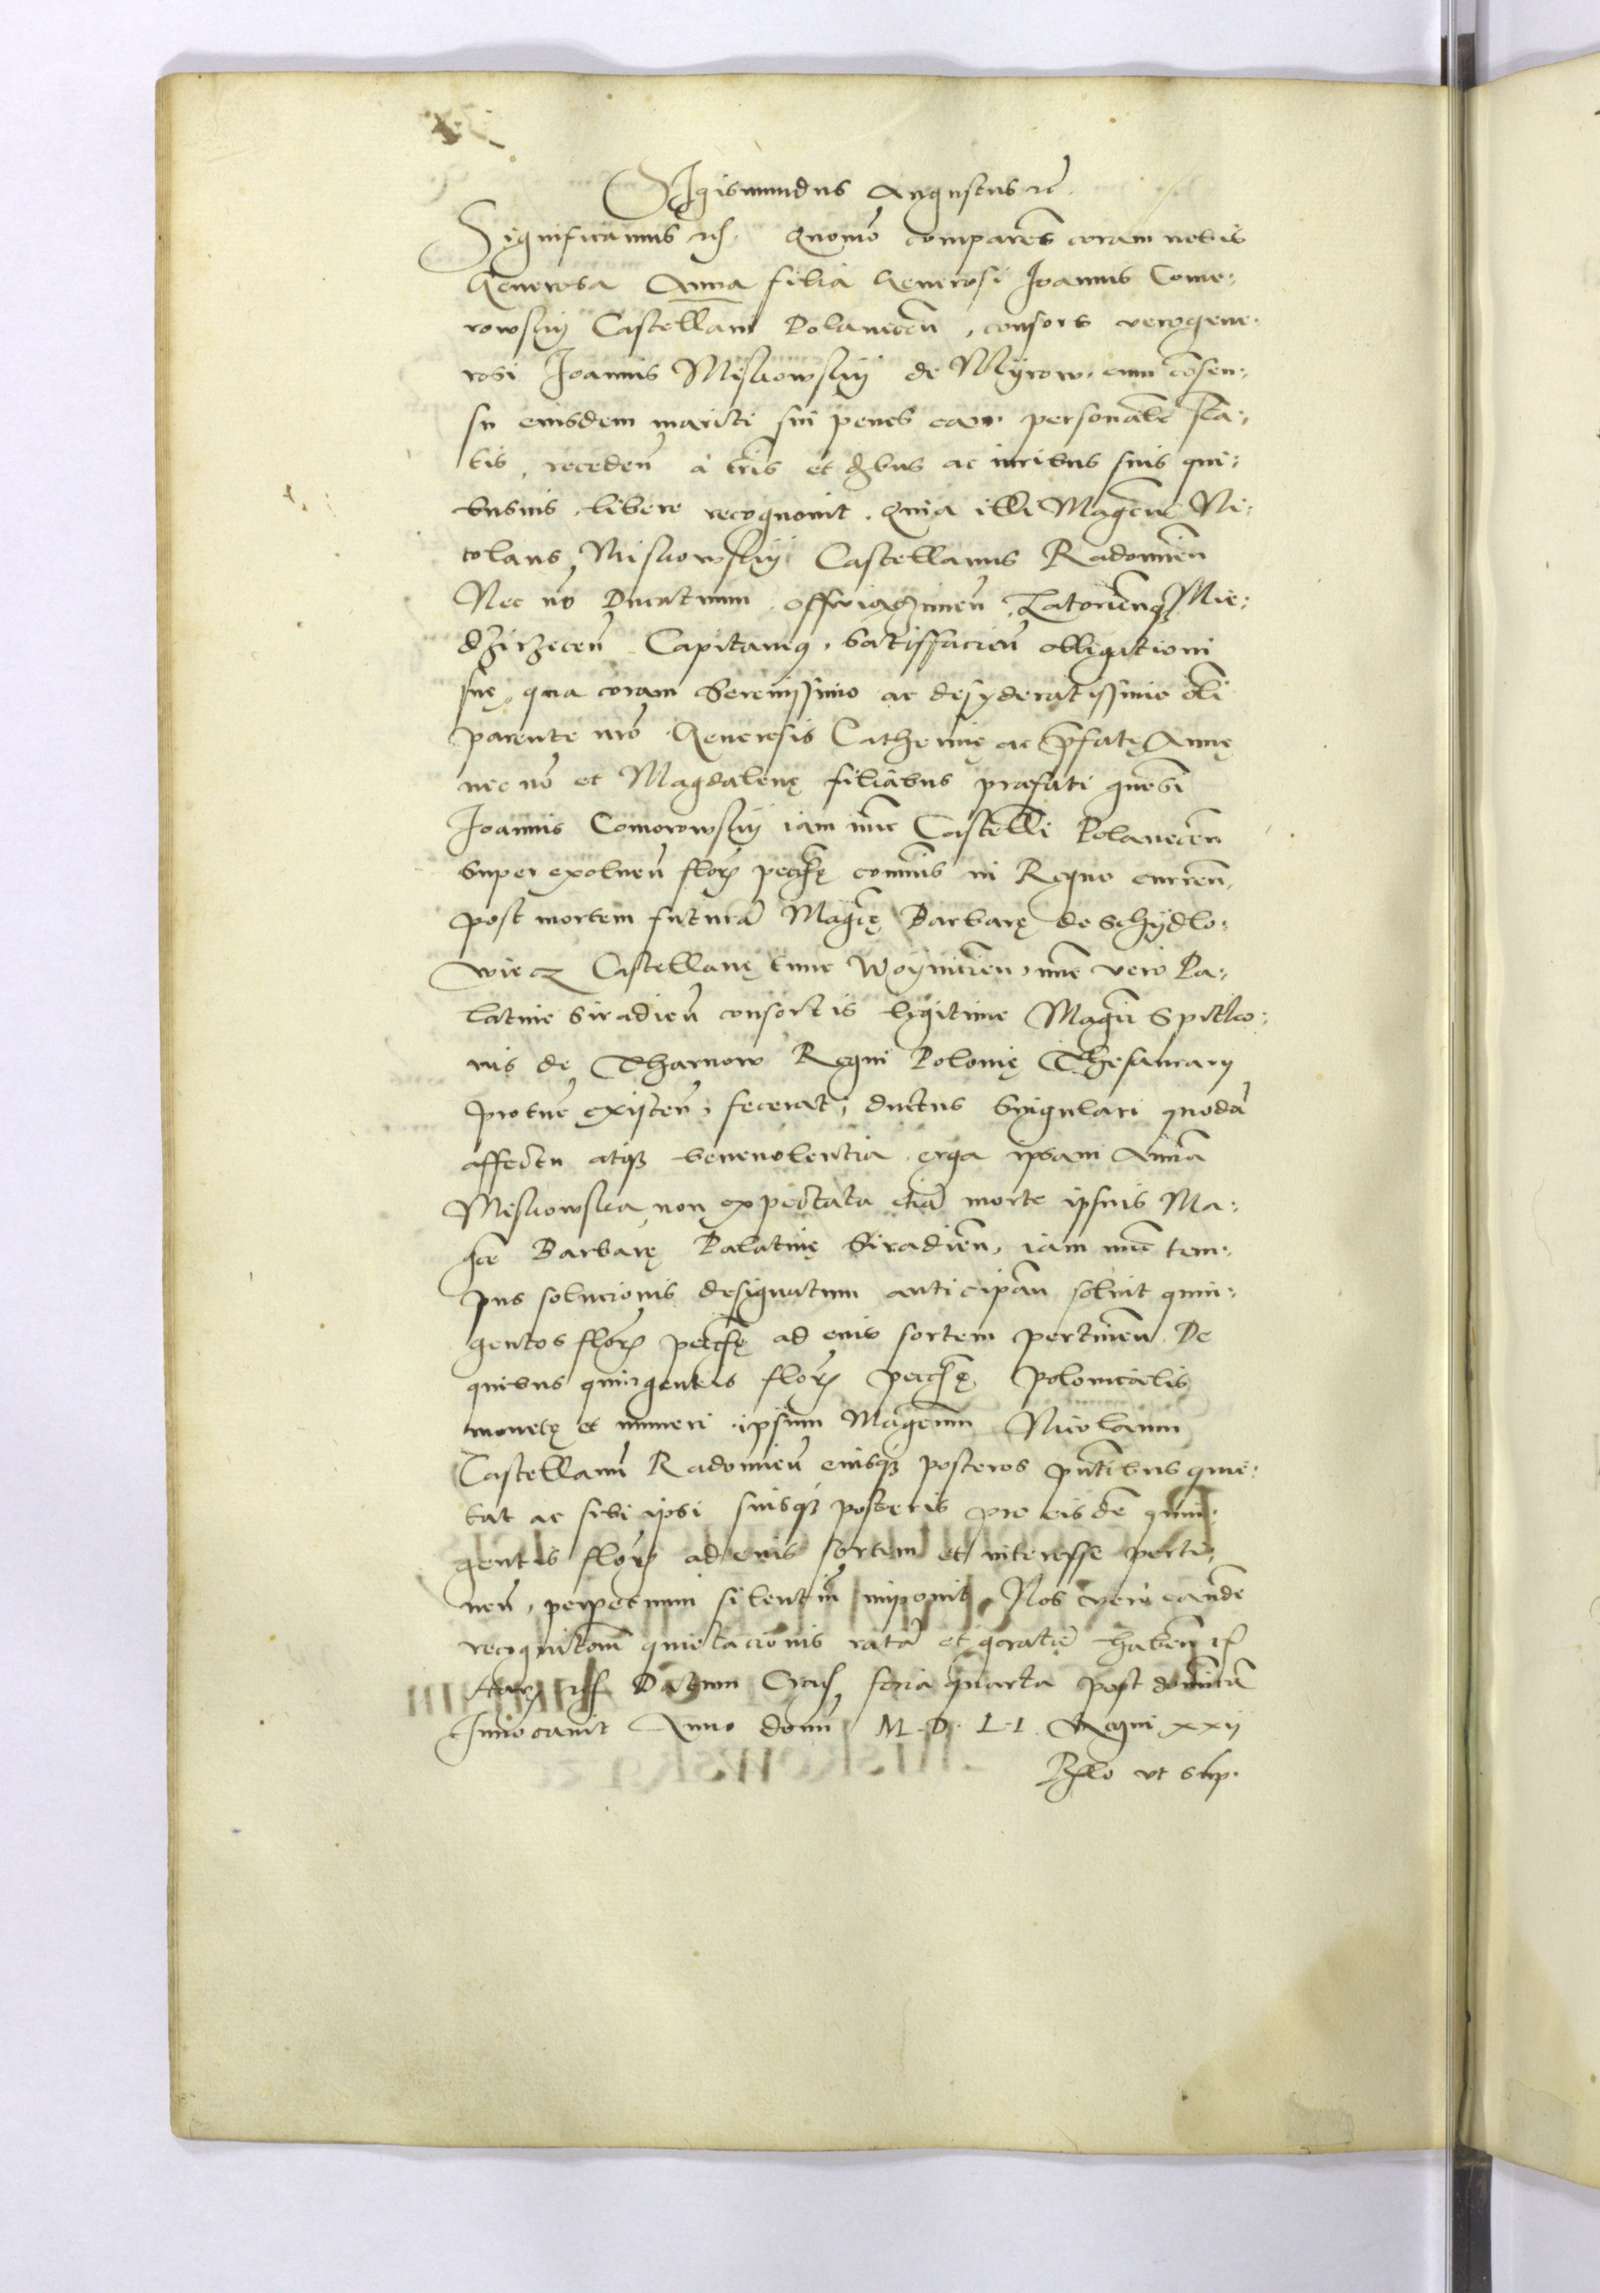 Sigismundus Augustus etc.
Significamus etc. Quomo comparens coram nobis
Generosa Anna filia Generosi Joannis Como:
rowskij Castellani Polanecen, consors vero gene:
rosi Joannis Miskowskij de Myrow, cum cosen:
su eiusdem mariti sui penes eam personalr sta:
tis, receden à tris et d̃bus ac iuribus suis qui:
busuis, libere recognouit. Quia illi Magcus Ni:
colaus Miskowskij Castellanus Radomien
Nec no Ducatuum Osswiaczimen Zatorienq Mie:
dzirzecen Capitaneus, satisfacien obligationi
suę, qua coram Serenissimo ac desyderatissimo oli
parente nro Generosis Catherinę ac pfatę Annę
nec no et Magdalenę filiabus praefati gnosi
Joannis Comorowskij iam nunc Castelli Polanecen
super exoluen flor pecuę comunis in Regno curren,
post mortem futura Magcę Barbarę de Schydlo:
wiecz Castellanę tunc Woynicien, nunc vero Pa:
latinę Siradien consortis legitimę Magci Spitko:
nis de Tharnow Regni Polonię Thesaurarij
protunc existen, fecerat, ductus singulari quoda
affectu atq beneuolentia erga ipsam Anna
Miskowska, non expectata etia morte ipsius Ma:
gcę Barbarę Palatinę Siradien, iam nunc tem:
pus solucionis designatum anticipan soluit quin:
gentos flor pecuę ad eius sortem pertinen. De
quibus quingentis flor pecuę polonicalis
monetę et numeri ipsum Magcum Nicolaum
Castellanu Radomien eiusq posteros pntibus quie:
tat ac sibi ipsi suisq posteris pro eisde quin:
gentis flor ad eius sortem et interesse perti:
nen, perpetuum silentiu imponit. Nos vero eande
recognitom quietacionis rata et grata haben etc.
Harum etc. Datum Crac feria quarta post dominica
Inuocauit Anno domi M.D.L.I. Regni xxij
Rllo vt sup.